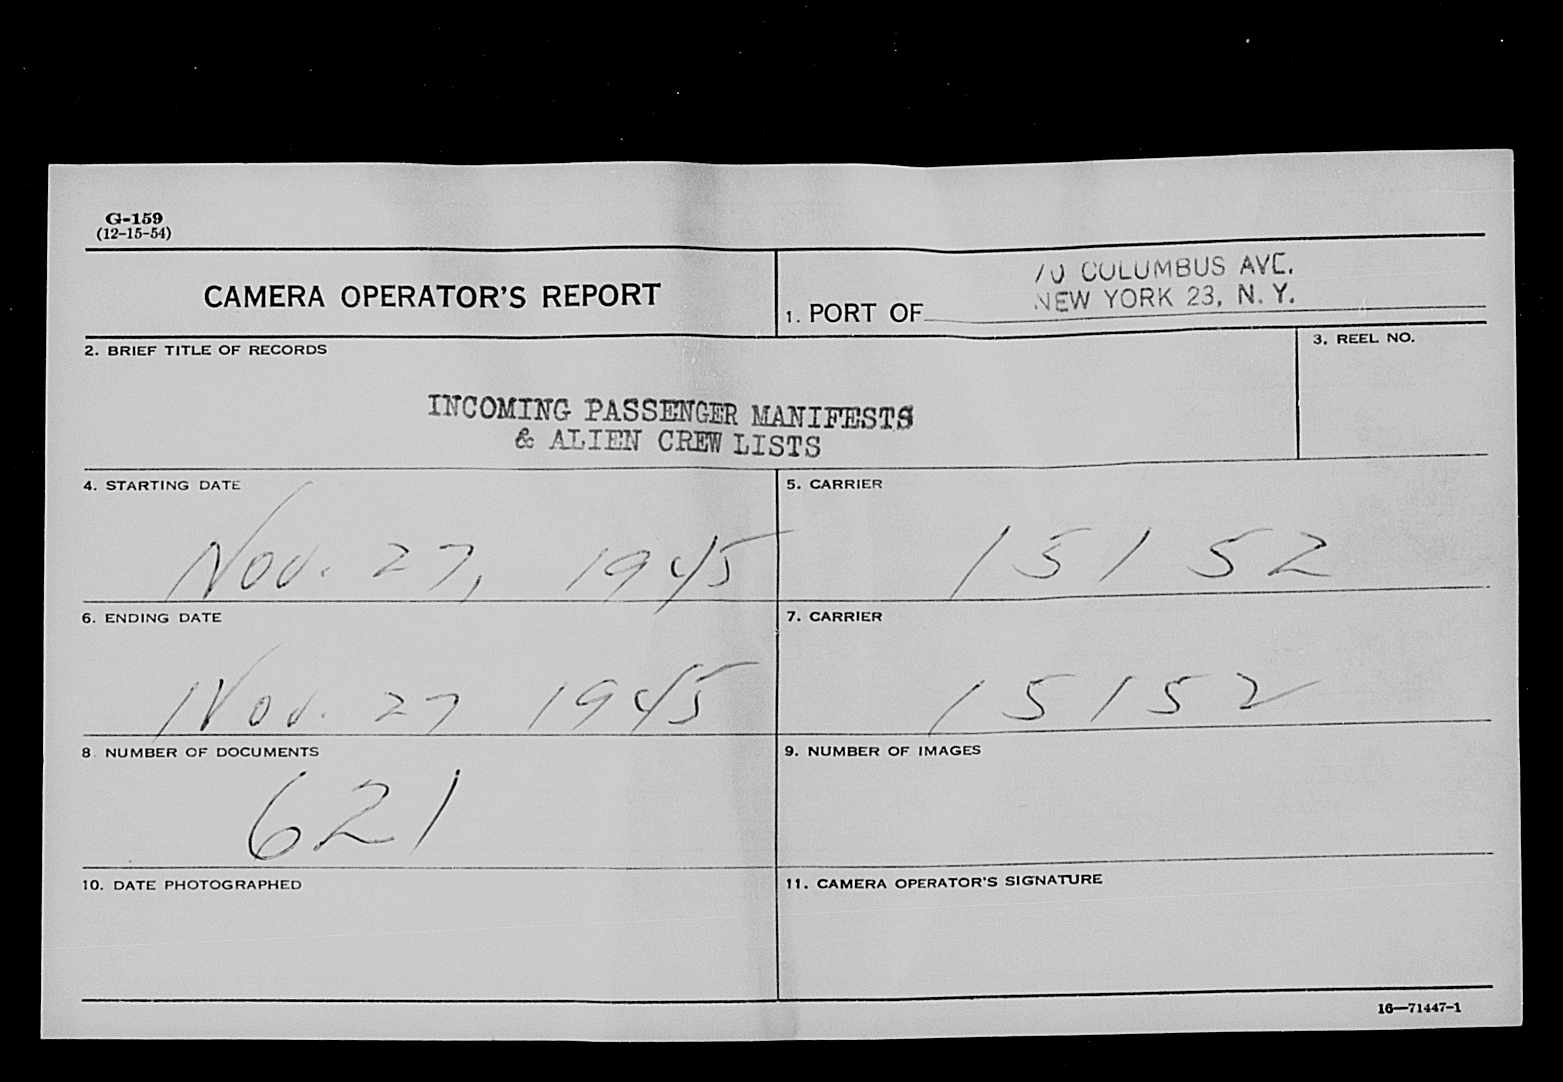 G-159
(12-15-54)
CAMERA OPERATOR'S REPORT
70 COLUMBUS AVE.
NEW YORK 23, N. Y.
1. PORT OF
2. BRIEF TITLE OF RECORDS
3. REEL NO.
INCOMING PASSENGER MANIFESTS
& ALIEN CREW LISTS
4. STARTING DATE
5. CARRIER
Nov. 27, 1945
15152
6. ENDING DATE
7. CARRIER
Nov. 27 1945
15152
8. NUMBER OF DOCUMENTS
9. NUMBER OF IMAGES
621
10. DATE PHOTOGRAPHED
11. CAMERA OPERATOR'S SIGNATURE
16—71447-1